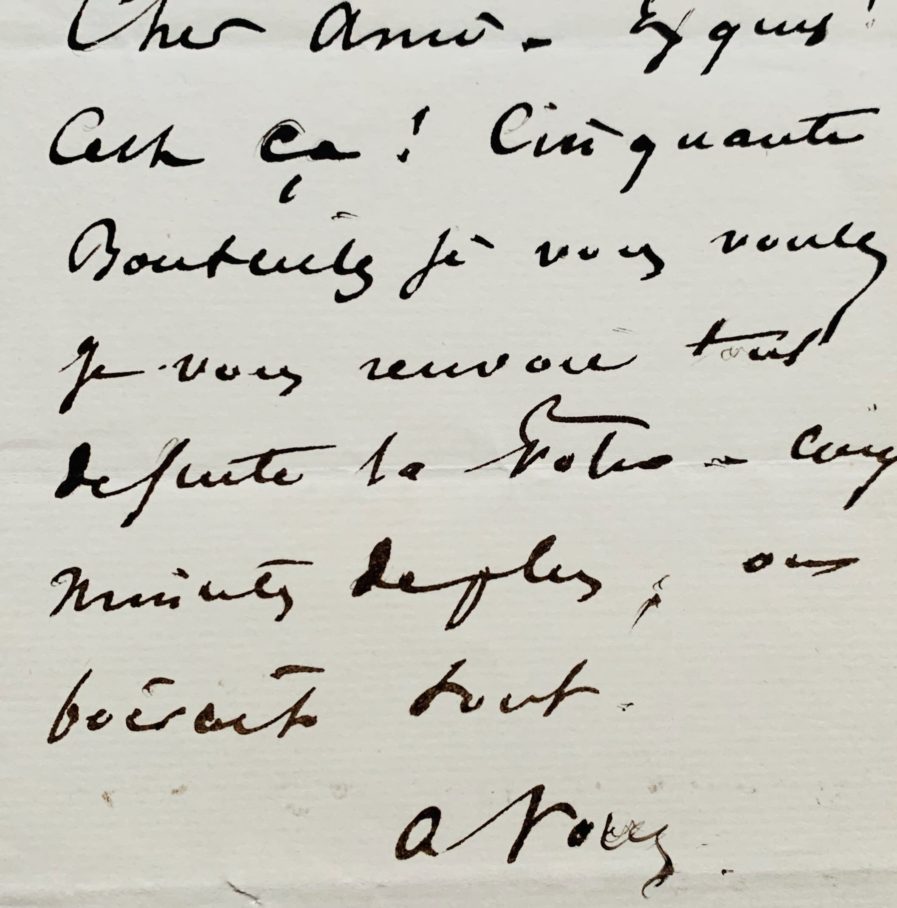 Cher Ami - Exquis !
C'est ça ! Cinquante
Bouteilles si vous voulez
Je vous renvoie tout
de suite la Votre - Cinq
minutes de plus, on
boirait tout.
a Vous.